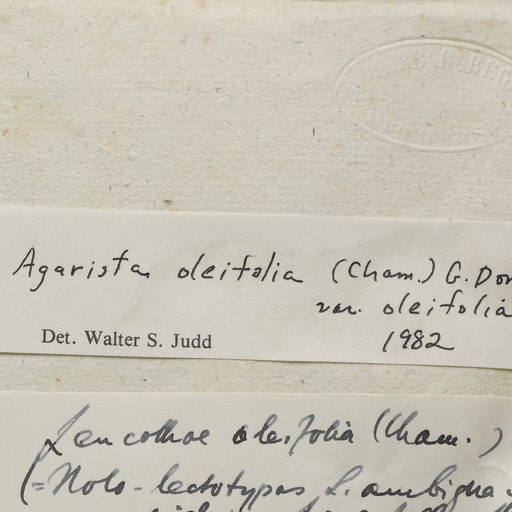 Agarista oleifolia (Cham.) G. Don
var. oleifolia
Det. Walter S. Judd
1982
Leucothoe oleifolia (Cham.)
(= Holo-lectotypus L. ambigua